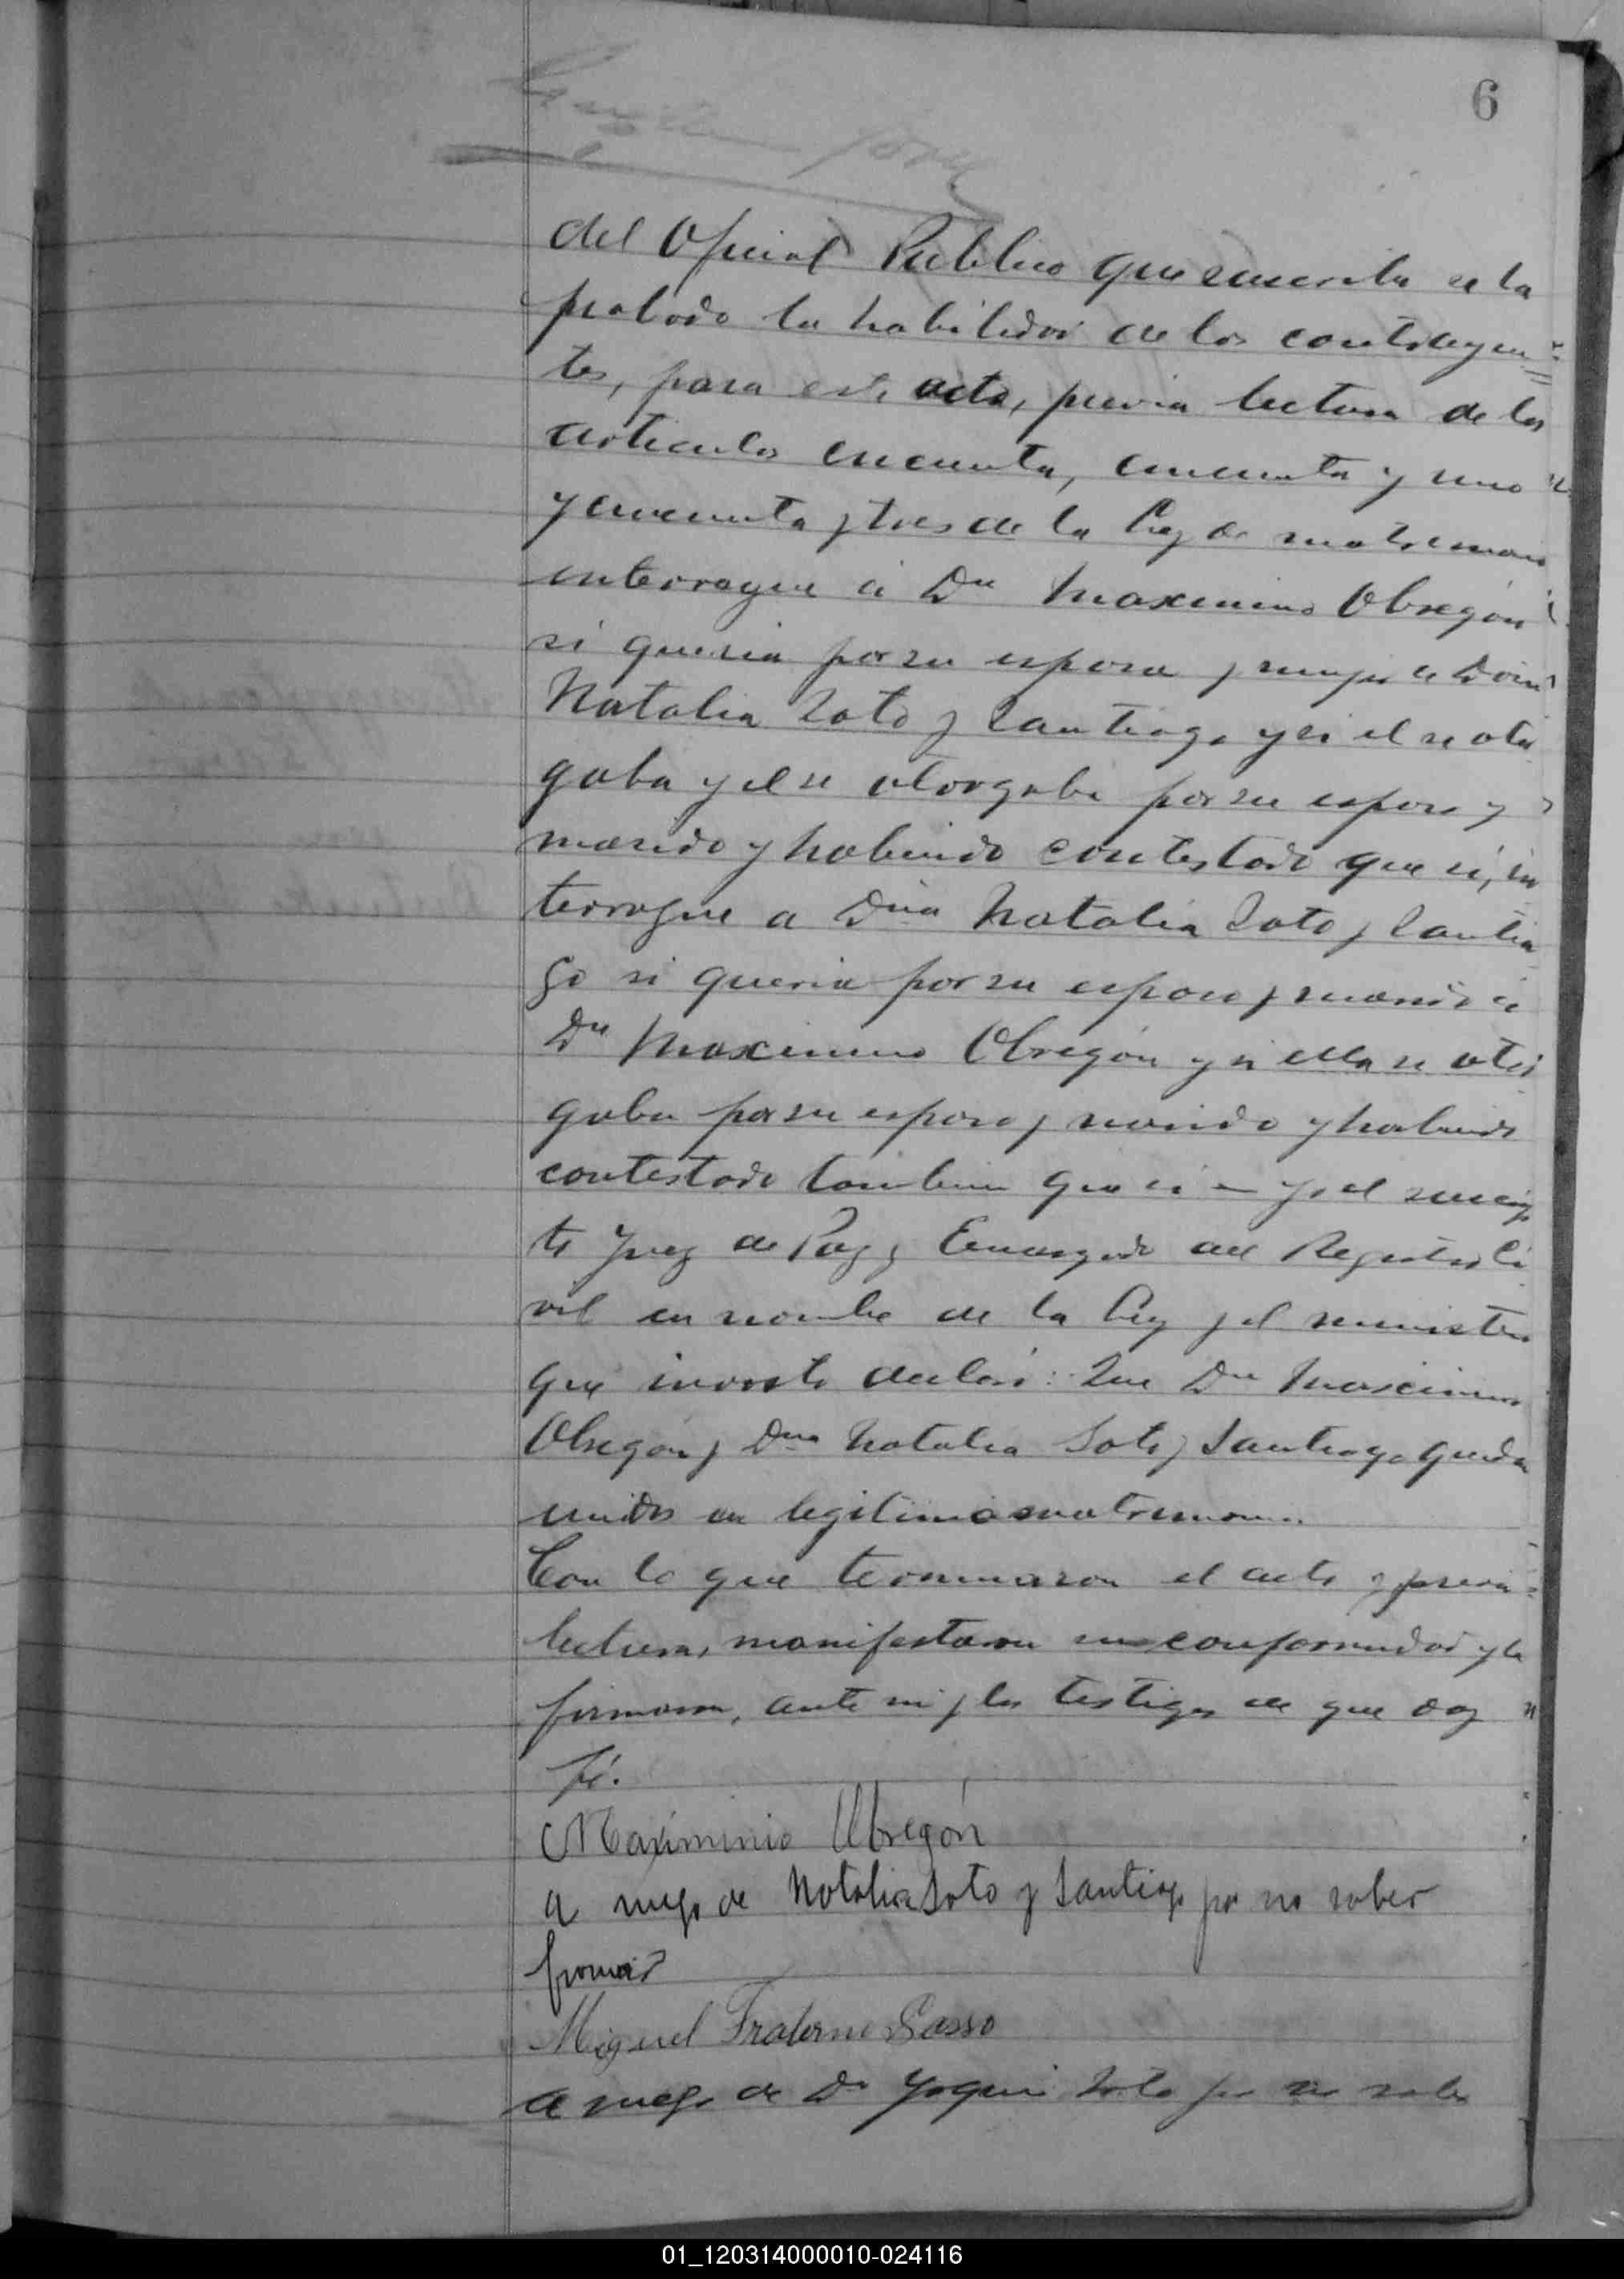 6
del Oficial Publico que suscribe se ha
probado la habilidad de los contrayen=
tes, para este acto, previa lectura de los
articulos cincuenta, cincuenta y uno
y cincuenta y tres de la Ley de matrimonio
interrogue á Dn Maximino Obregón
si queria por su esposa y mujer a Doña
Natalia Soto y Santiago y si el se otor
gaba y el se otorgaba por su esposo y
marido y habiendo contestado que si, in
terrogue a Dña Natalia Soto y Santia
go si queria por su esposo y marido á
Dn Maximino Obregón y si ella se otor
gaba por su esposo y marido y habiendo
contestado tambien que si = yo el
te Juez de Paz y Encargado del Registro Ci
vil en nombre de la Ley y el ministerio
que invisto declaró: Que Dn Maximino
Obregón y Dña Natalia Soto y Santiago quedan
unidos en legitimo matrimonio.
Con lo que terminaron el acto y previa
lectura, manifestaron su conformidad y la
firmaron, ante mi y los testigos de que doy
fé.
Maximinio Obregón
A ruego de Natalia Soto y Santiago por no saber
firmar
Miguel Fraterno Sasso
A ruego de Dn Joquin Soto por no saber
01_120314000010-024116